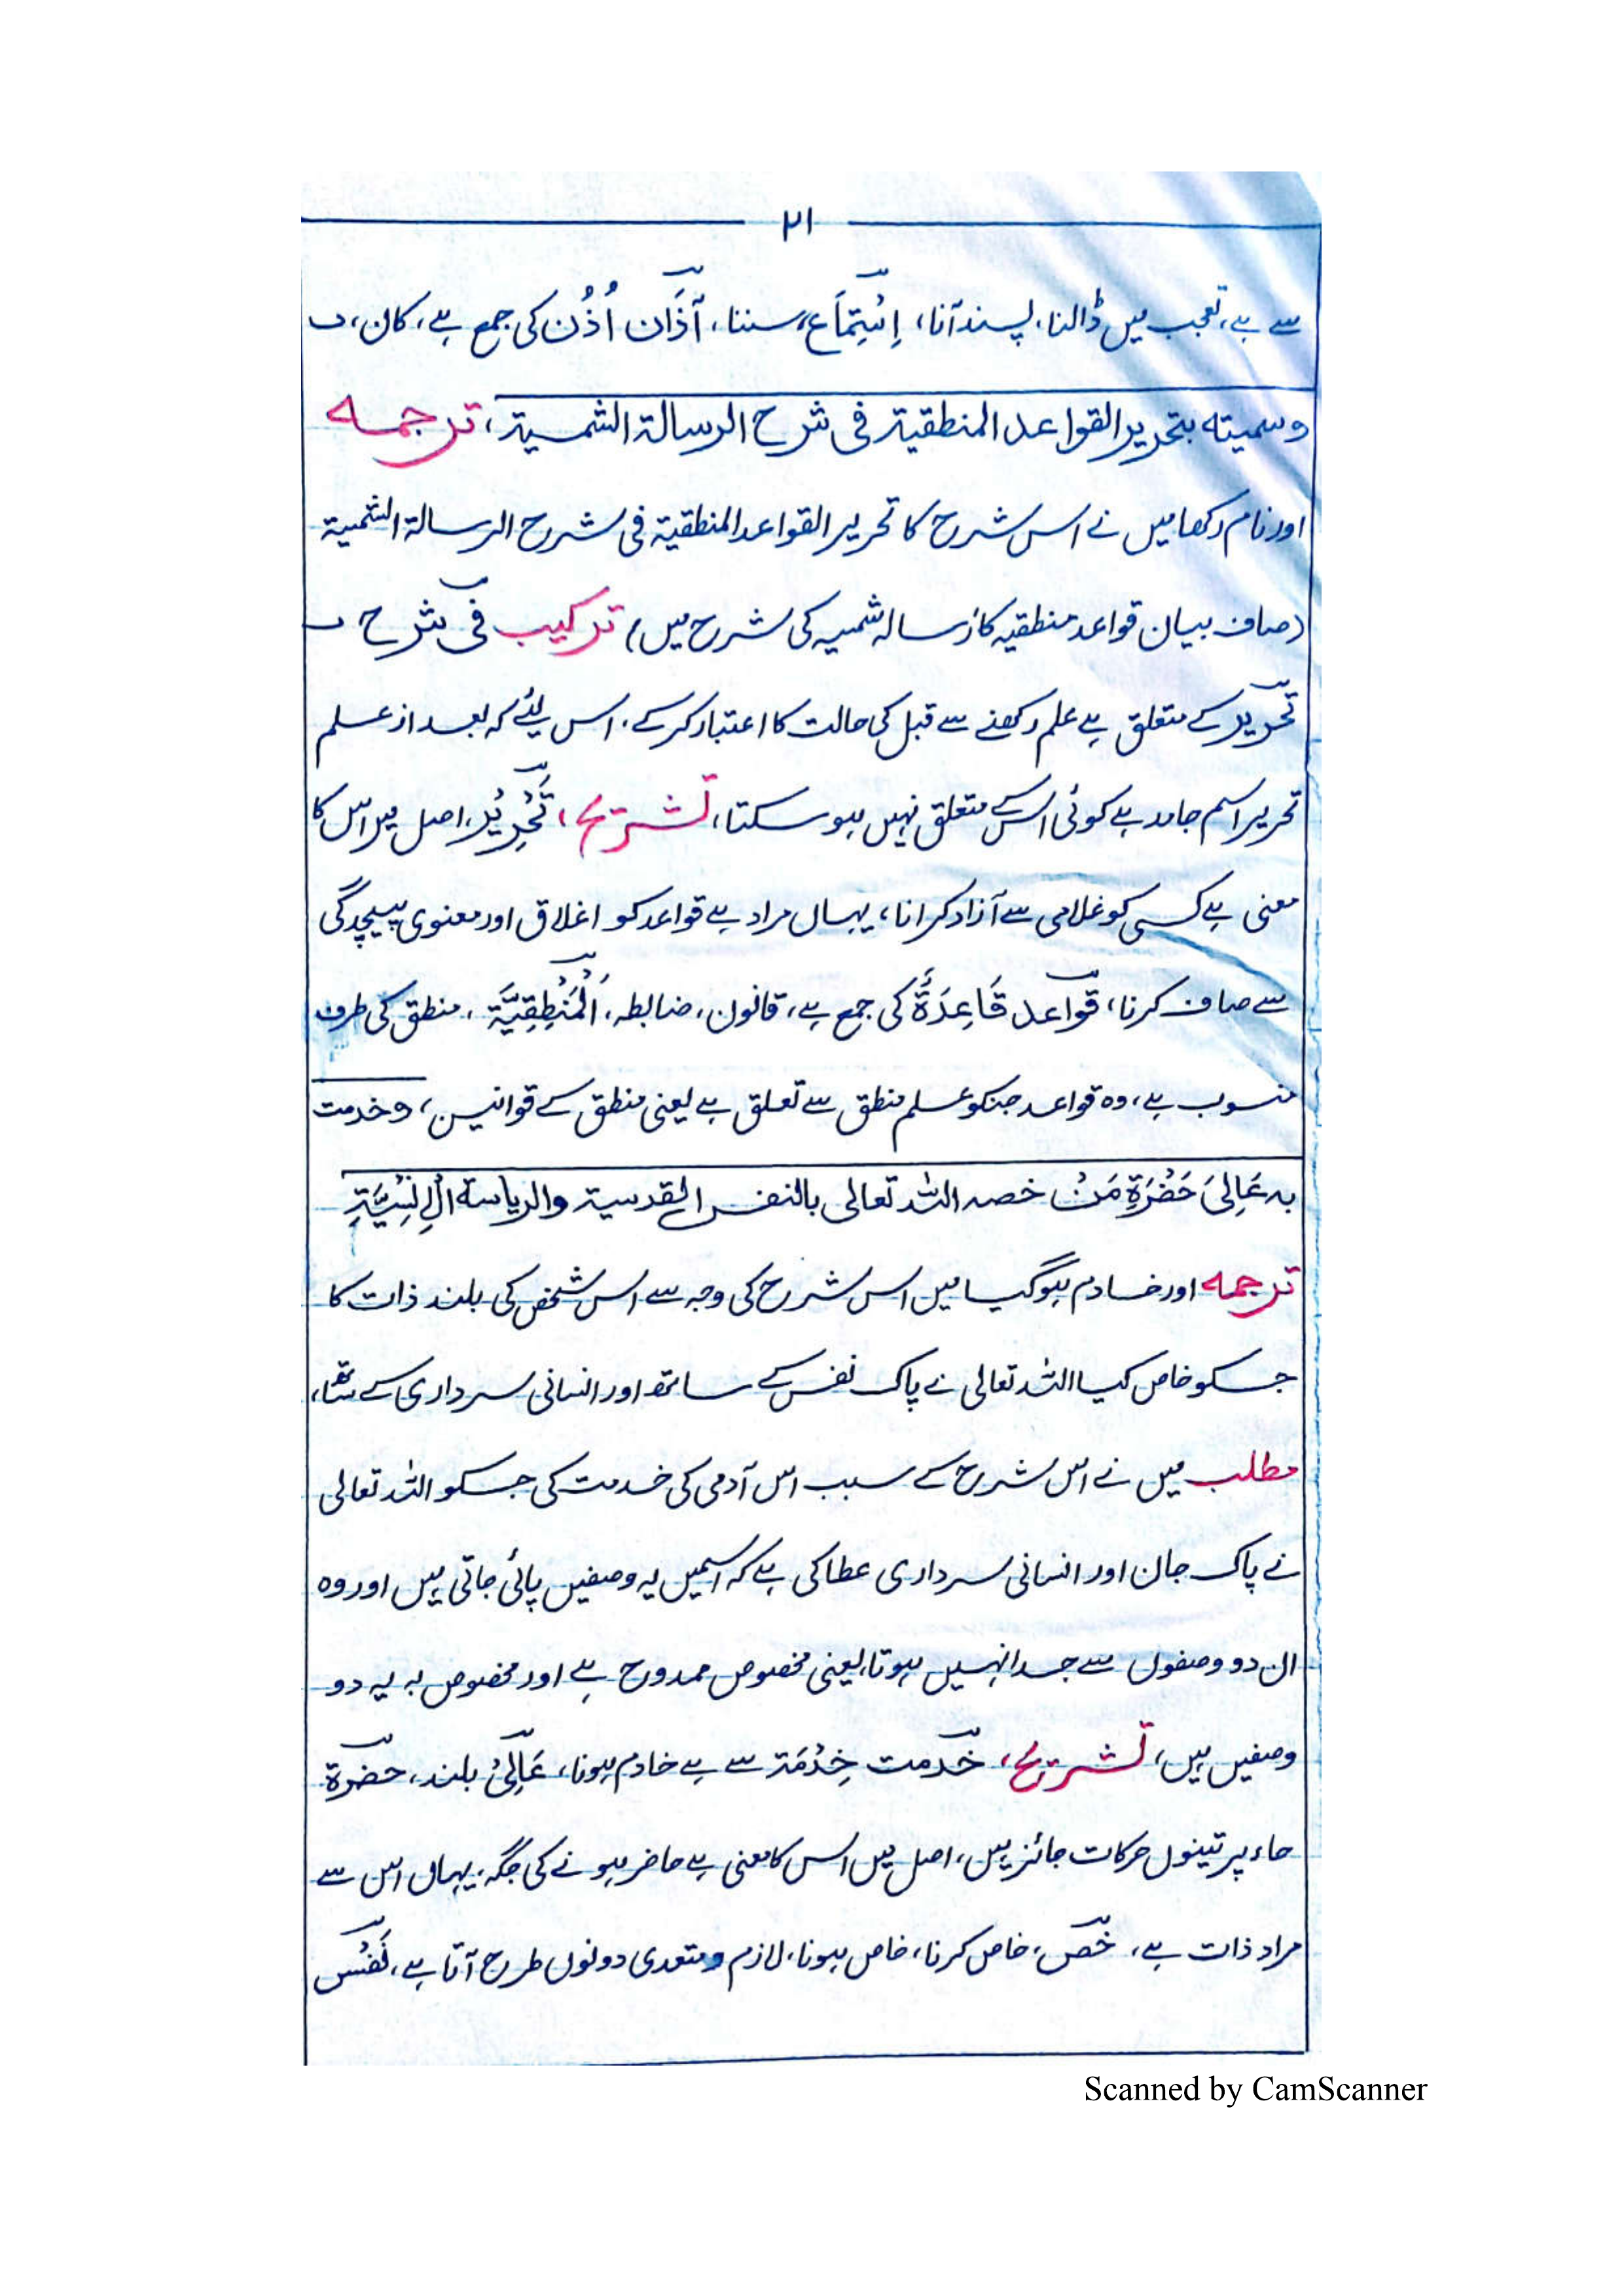 ۲۱
سے ہے، تعجب میں ڈالنا، پسند آنا، اِسْتِمَاع، سننا، آذَان اُذُن کی جمع ہے، کان،
وسمیته بتحریر القواعد المنطقیة فی شرح الرسالة الشمسیة، ترجمہ
اور نام رکھا میں نے اس شرح کا تحریر القواعد المنطقیة فی شرح الرسالة الشمسیة
(صاف بیان قواعد منطقیہ کا رسالہ شمسیہ کی شرح میں) ترکیب فی شرح
تحریر کے متعلق ہے علم رکھنے سے قبل کی حالت کا اعتبار کر کے، اس لیئے کہ بعد از علم
تحریر اسم جامد ہے کوئی اس کے متعلق نہیں ہو سکتا، تشریح، تَحْرِیْر، اصل میں اس کا
معنی ہے کسی کو غلامی سے آزاد کرانا، یہاں مراد ہے قواعد کو اغلاق اور معنوی پیچیدگی
سے صاف کرنا، قواعد قَاعِدَةٌ کی جمع ہے، قانون، ضابطہ، اَلْمَنْطِقِیَّة، منطق کی طرف
منسوب ہے، وہ قواعد جنکو علم منطق سے تعلق ہے یعنی منطق کے قوانین، وخدمت
به عَالِیَ حَضْرَةِ مَنْ خصه اللہ تعالی بالنفس القدسیة والریاسة الْاِنْسِیَّةِ
ترجمہ اور خادم ہو گیا میں اس شرح کی وجہ سے اس شخص کی بلند ذات کا
جسکو خاص کیا اللہ تعالی نے پاک نفس کے ساتھ اور انسانی سرداری کے ساتھ،
مطلب میں نے اس شرح کے سبب اس آدمی کی خدمت کی جسکو اللہ تعالی
نے پاک جان اور انسانی سرداری عطا کی ہے کہ اسمیں یہ وصفیں پائی جاتی ہیں اور وہ
ان دو وصفوں سے جدا نہیں ہوتا، یعنی مخصوص ممدوح ہے اور مخصوص بہ یہ دو
وصفیں ہیں، تشریح، خدمت خِدْمَة سے ہے خادم ہونا، عَالِیْ بلند، حضرة
حاء پر تینوں حرکات جائز ہیں، اصل میں اس کا معنی ہے حاضر ہونے کی جگہ، یہاں اس سے
مراد ذات ہے، خَص، خاص کرنا، خاص ہونا، لازم و متعدی دونوں طرح آتا ہے، نَفْس
Scanned by CamScanner